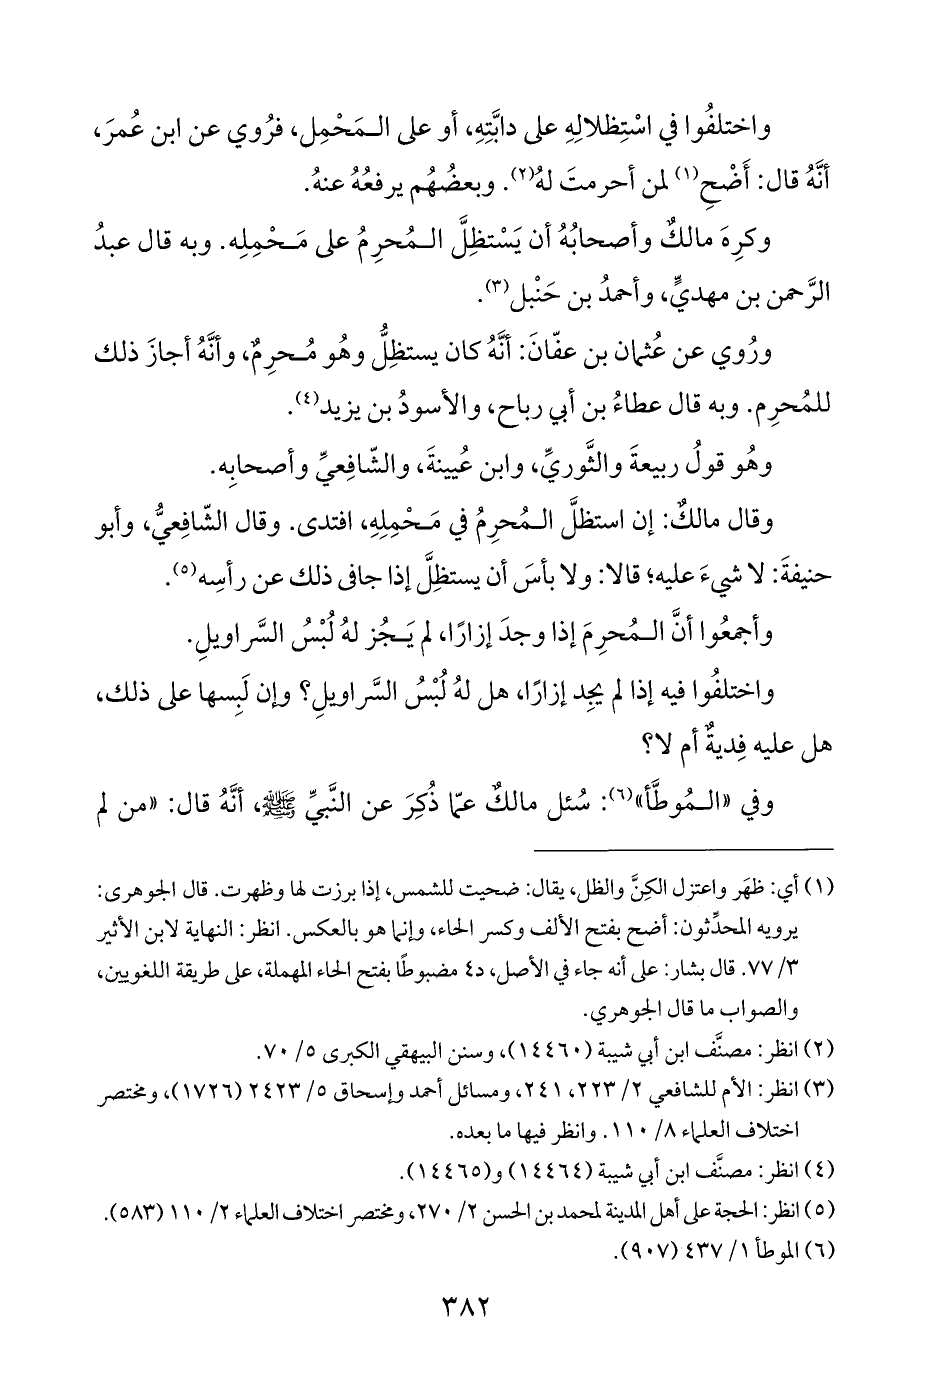 واختلفُوا في اسْتِظلالِهِ على دابَّتِهِ، أو على الـمَحْمِل، فرُوي عن ابن عُمرَ،
أنَّهُ قال: أَضْحِ(١) لمن أحرمتَ لهُ(٢). وبعضُهُم يرفعُهُ عنهُ.
وكرِهَ مالكٌ وأصحابُهُ أن يَسْتظِلَّ الـمُحرِمُ على مَـحْمِلِه. وبه قال عبدُ
الرَّحمن بن مهديٍّ، وأحمدُ بن حَنْبل(٣).
ورُوي عن عُثمان بن عفّانَ: أنَّهُ كان يستظِلُّ وهُو مُـحرِمٌ، وأنَّهُ أجازَ ذلك
للمُحرِم. وبه قال عطاءُ بن أبي رباح، والأسودُ بن يزيد(٤).
وهُو قولُ ربيعةَ والثَّوريِّ، وابن عُيينةَ، والشّافِعيِّ وأصحابِه.
وقال مالكٌ: إن استظلَّ الـمُحرِمُ في مَـحْمِلِهِ، افتدى. وقال الشّافِعيُّ، وأبو
حنيفةَ: لا شيءَ عليه؛ قالا: ولا بأسَ أن يستظِلَّ إذا جافى ذلك عن رأسِه(٥).
وأجمعُوا أنَّ الـمُحرِمَ إذا وجدَ إزارًا، لم يَـجُز لهُ لُبْسُ السَّراويلِ.
واختلفُوا فيه إذا لم يجِد إزارًا، هل لهُ لُبْسُ السَّراويلِ؟ وإن لَبِسها على ذلك،
هل عليه فِديةٌ أم لا؟
وفي «الـمُوطَّأ»(٦): سُئل مالكٌ عمّا ذُكِرَ عن النَّبيِّ ﷺ، أنَّهُ قال: «من لم
(١) أي: ظهَر واعتزل الكِنَّ والظل، يقال: ضحيت للشمس، إذا برزت لها وظهرت. قال الجوهرى:
يرويه المحدِّثون: أضح بفتح الألف وكسر الحاء، وإنما هو بالعكس. انظر: النهاية لابن الأثير
٣/ ٧٧. قال بشار: على أنه جاء في الأصل، د٤ مضبوطًا بفتح الحاء المهملة، على طريقة اللغويين،
والصواب ما قال الجوهري.
(٢) انظر: مصنَّف ابن أبي شيبة (١٤٤٦٠)، وسنن البيهقي الكبرى ٥/ ٧٠.
(٣) انظر: الأم للشافعي ٢/ ٢٢٣، ٢٤١، ومسائل أحمد وإسحاق ٥/ ٢٤٢٣ (١٧٢٦)، ومختصر
اختلاف العلماء ٨/ ١١٠. وانظر فيها ما بعده.
(٤) انظر: مصنَّف ابن أبي شيبة (١٤٤٦٤) و(١٤٤٦٥).
(٥) انظر: الحجة على أهل المدينة لمحمد بن الحسن ٢/ ٢٧٠، ومختصر اختلاف العلماء ٢/ ١١٠ (٥٨٣).
(٦) الموطأ ١/ ٤٣٧ (٩٠٧).
٣٨٢